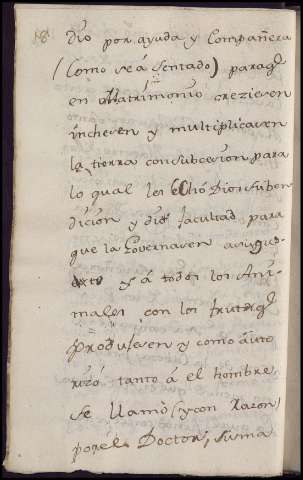 18
Dio por ayuda y Compañera
(Como se á sentado) para q̃
en Matrimonio creziesen
inchesen y multiplicasen
la tierra con subcesion, para
lo qual los echó Dios su ben
dicion y dió facultad para
que la Governasen a su gus-
y á todos los Ani-
males con los frutos q̃
Produsesen y como auto
rizó tanto á el hombre
se llamó (y con Razon)
por el Doctor, suma